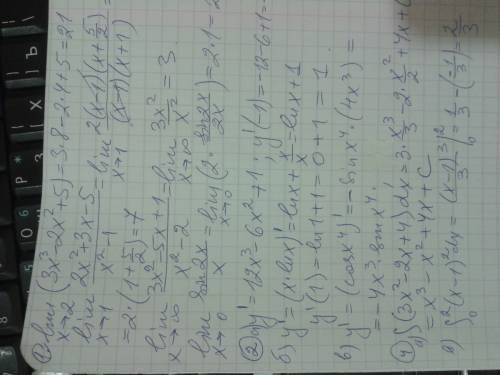 ① lim (3x³-2x²+5)=3·8-2·4+5=21
x→2
lim (2x²+3x-5)/(x²-1) = lim (2(x-1)(x+5/2))/((x-1)(x+1)) =
x→1 x→1
=2·(1+5/2)=7
lim (3x²-5x+1)/(x²-2) = lim 3x²/x² = 3.
x→∞ x→∞
lim sin2x/x = lim (2· sin2x/2x)=2·1=2
x→0 x→0
② a) y'=12x³-6x²+1; y'(-1)=-12-6+1=-
б) y'=(x·lnx)'=lnx+x/x=lnx+1
y'(1)=ln1+1=0+1=1.
в) y'=(cosx⁴)'=-sinx⁴·(4x³)=
=-4x³·sinx⁴.
④ a) ∫(3x²-2x+4)dx=3·x³/3-2·x²/2+4x+C
=x³-x²+4x+C
∫₀²(x-1)²dx=(x-1)³/3|₀²=1/3-(-1/3)=2/3